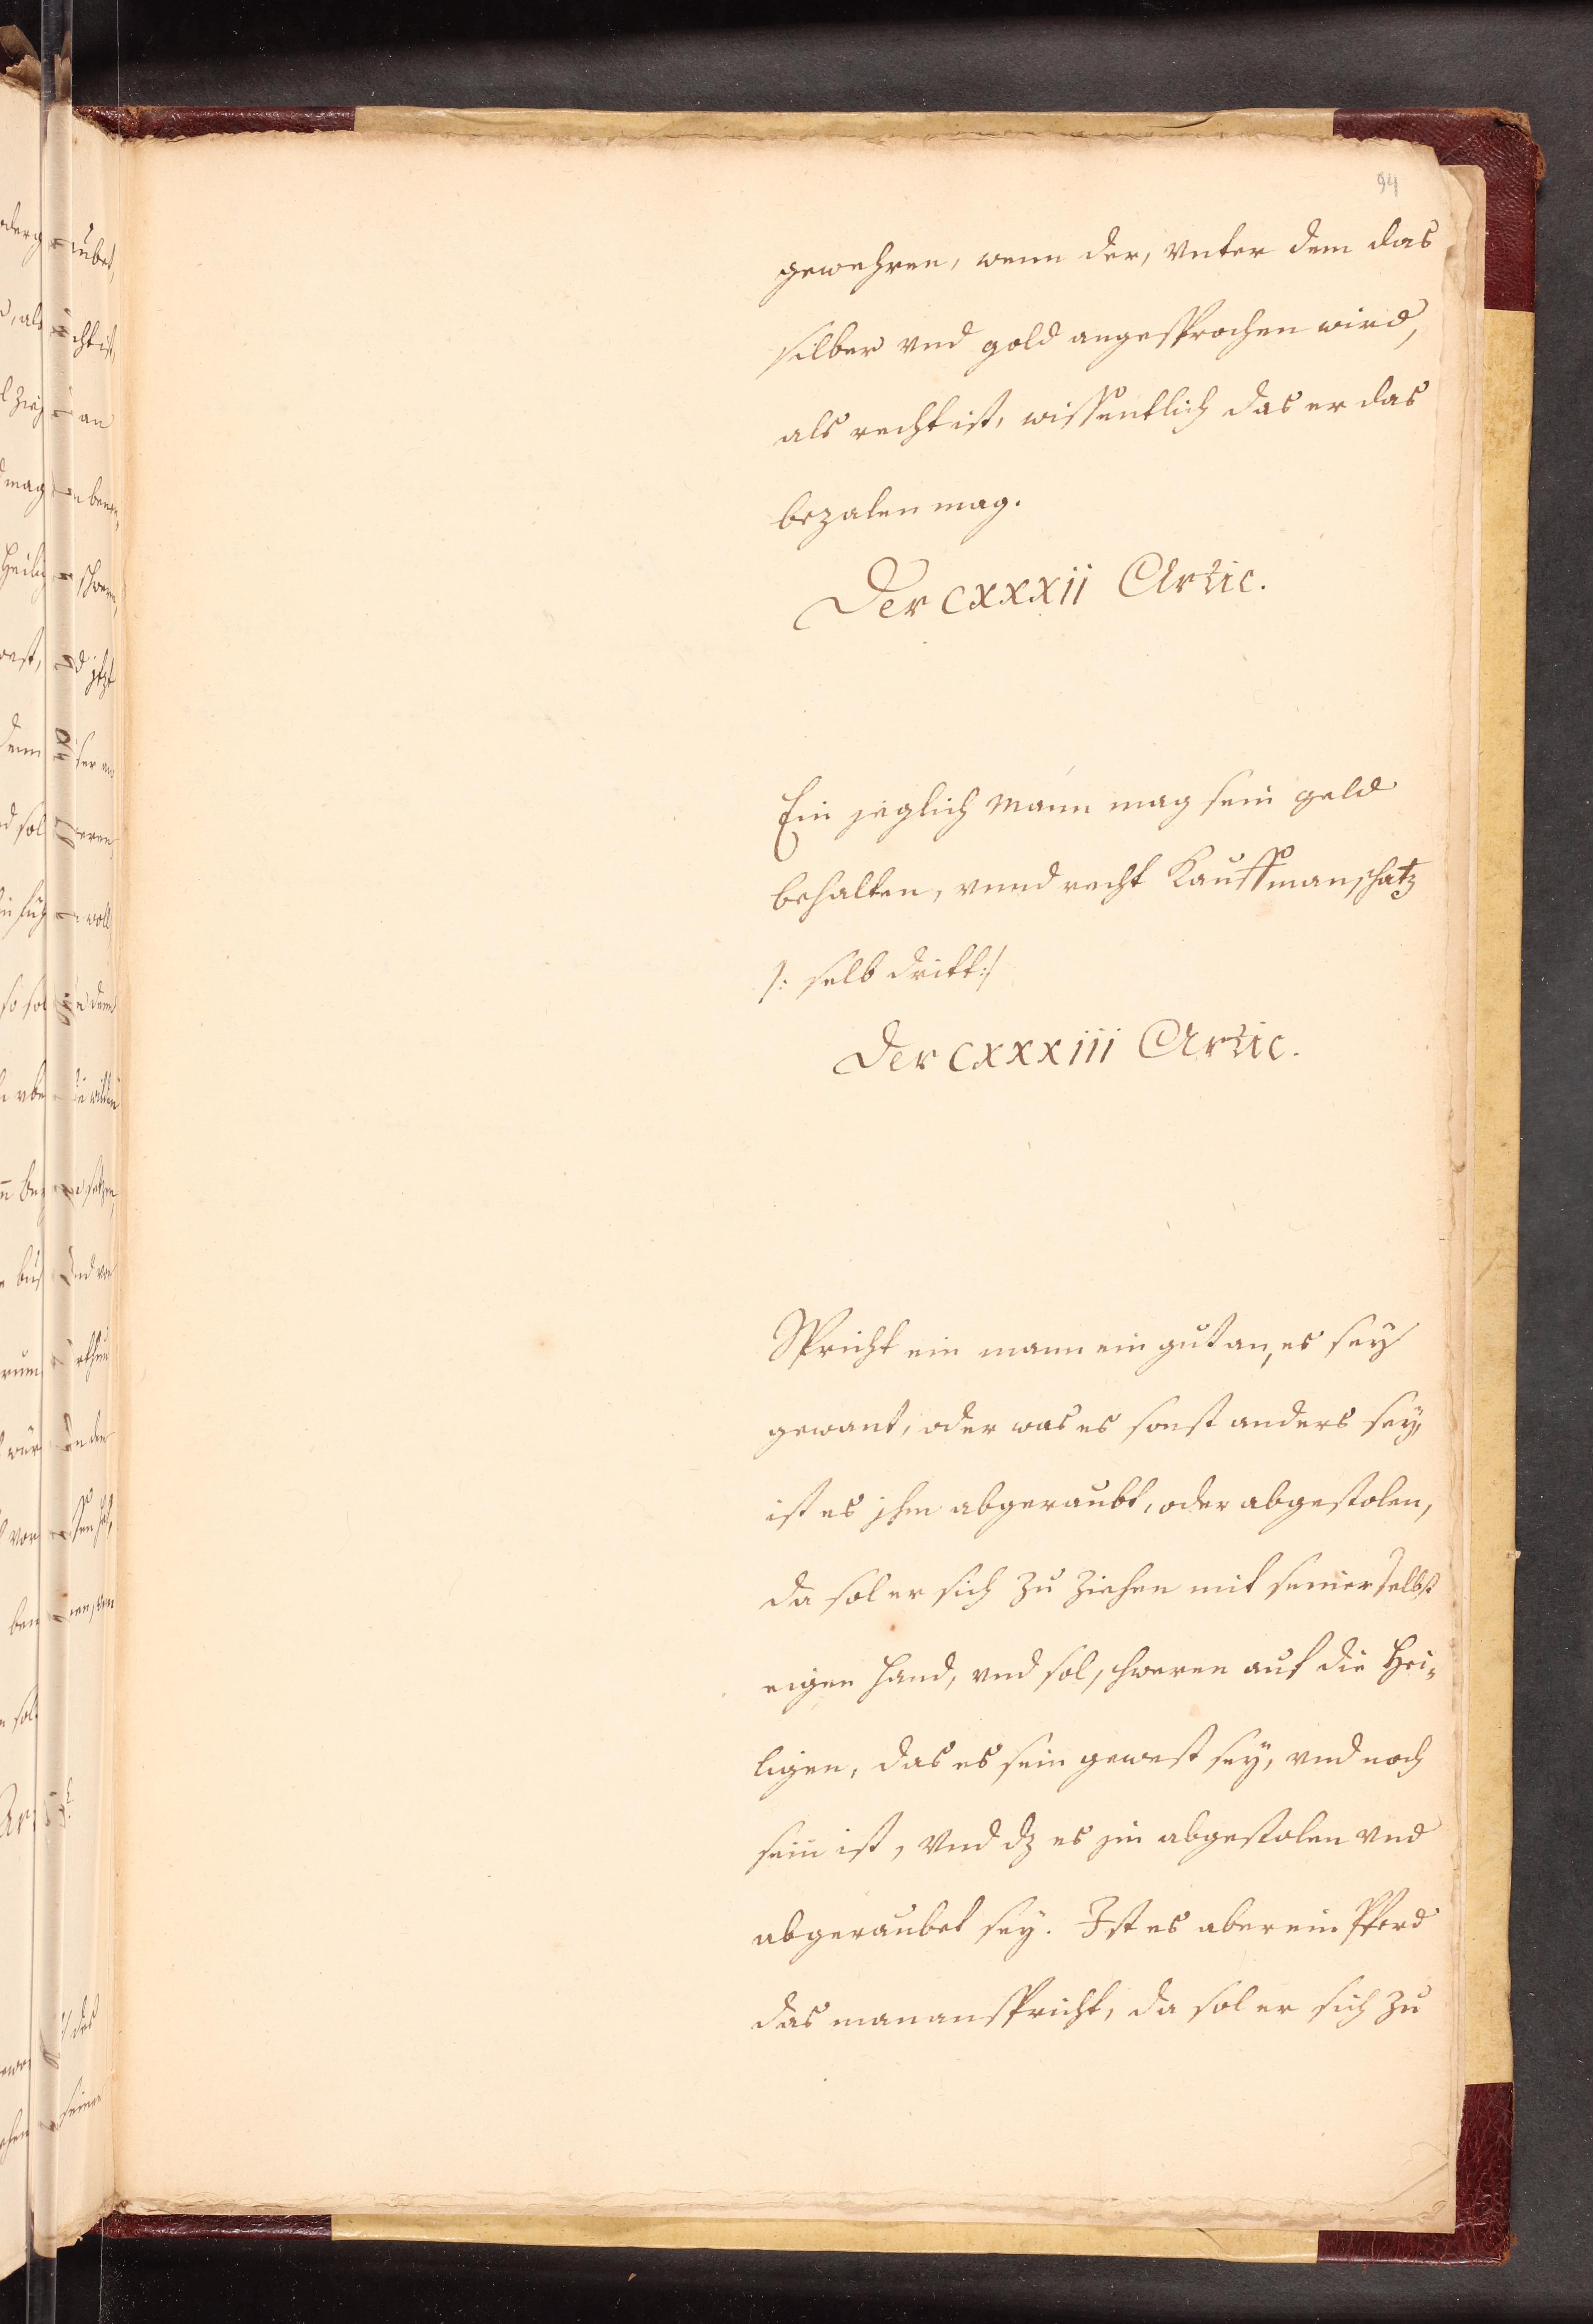 94
gewehren, wenn der, vnter dem das
silber vnd gold angesprochen wird,
als recht ist, wissentlich das er das
bezalen mag.
Der CXXXII Artic.
Ein jeglich Mann mag sein geld
behalten, vnnd recht Kauffmanschatz
/: selb dritt :/
Der CXXXIII Artic.
Spricht ein mann ein gut an, es sey
gewant, oder was es sonst anders sey,
ist es jhm abgeraubt, oder abgestolen,
da sol er sich zu ziehen mit seiner selbst
eigen hand, vnd sol schweren auf die Hei„
ligen, das es sein gewest sey, vnd noch
sein ist, Vnd dz es jm abgestolen vnd
abgeraubet sey. Ist es aber ein Pferd
das man anspricht, da sol er sich zu